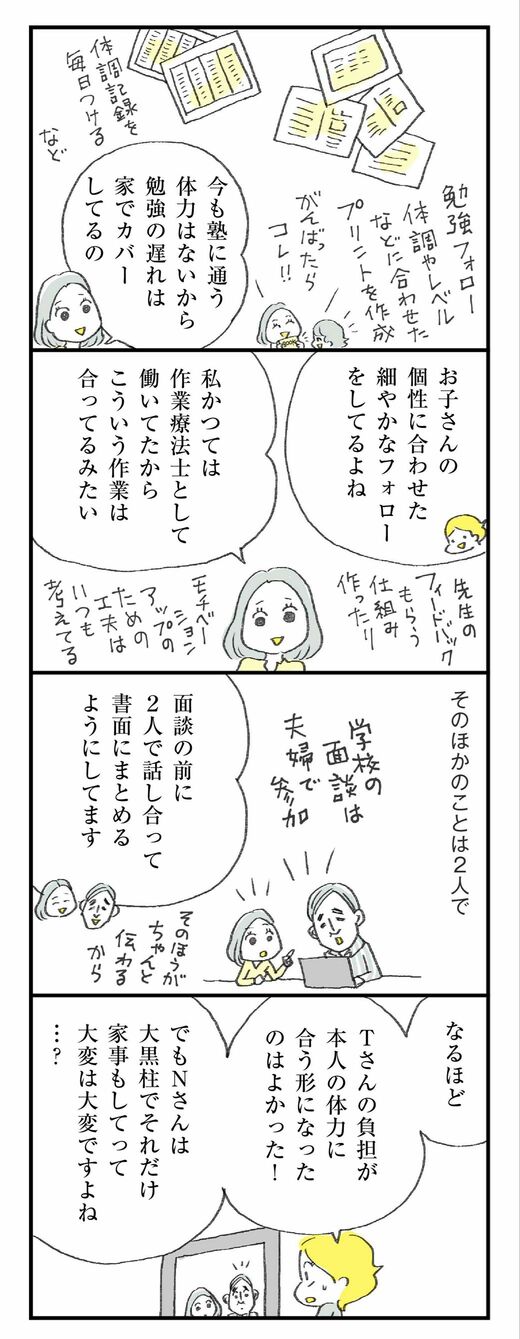 勉強フォロー
体調やレベル
などに合わせた
プリントを作成
がんばったら
コレ!!
体調記録を
毎日つける
など
今も塾に通う
体力はないから
勉強の遅れは
家でカバー
してるの
お子さんの
個性に合わせた
細やかなフォロー
をしてるよね
私かつては
作業療法士として
働いてたから
こういう作業は
合ってるみたい
先生の
フィードバック
もらう
仕組み
作ったり
モチベー
ション
アップの
ための
工夫は
いつも
考えてる
そのほかのことは2人で
学校の
面談は
夫婦で
参加
面談の前に
2人で話し合って
書面にまとめる
ようにしてます
そのほうが
ちゃんと
伝わる
から
なるほど
Tさんの負担が
本人の体力に
合う形になった
のはよかった!
でもNさんは
大黒柱でそれだけ
家事もしてって
大変は大変ですよね
…?